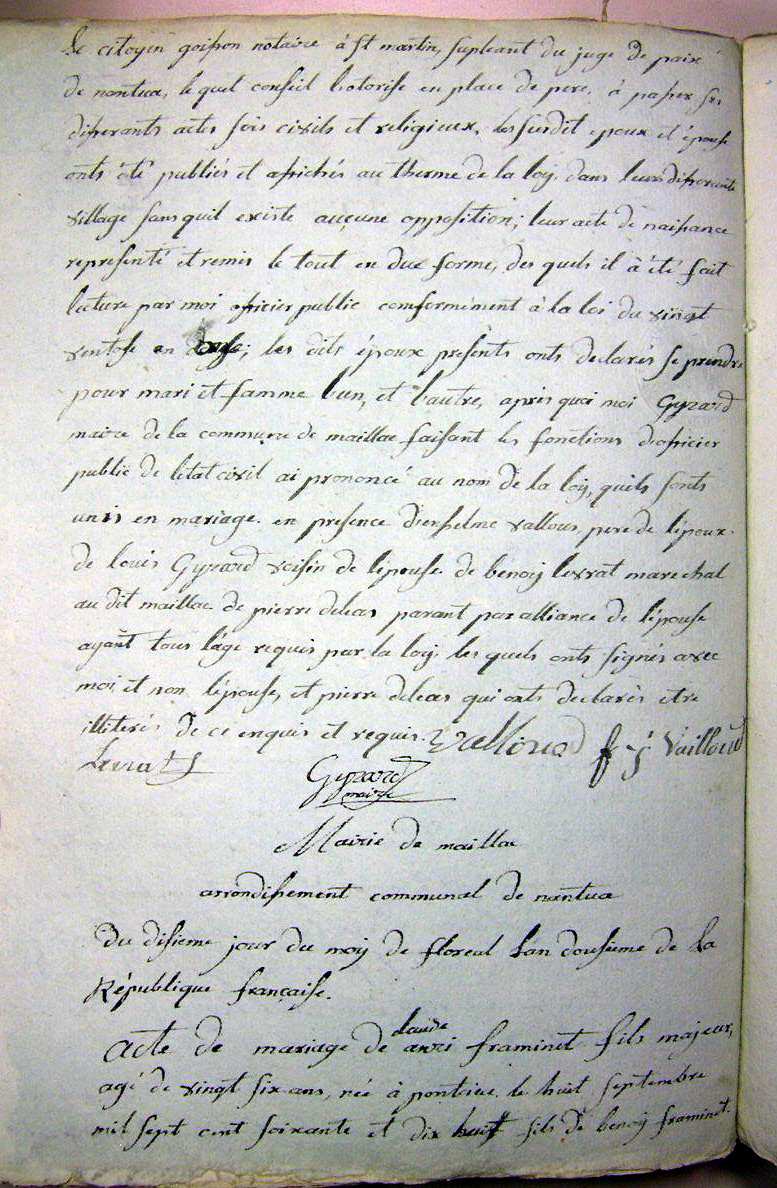 le citoyen goisson notaire à st martin, supleant du juge de paix
de nantua, le quel conseil l'otorise en place de pere, à passer ses
diferants actes sois civils et religieux, les susdit epoux et épouse
onts été publiés et afichés au therme de la loy, dans leurs diferants
village sans quil existe auçune opposition; leur acte de naissance
representé et remis le tout en due forme, des quels il à été fait
lecture par moi oficier public conformément à la loi du vingt
ventose en onze; les dits époux présents onts declarés se prendre
pour mari et famme lun, et lautre, aprés quoi moi Gyrard
maire de la commune de maillac faisant les fonctions d'oficier
public de létat civil ai prononcé au nom de la loy, quils sonts
unis en mariage. en presence d'enthelme vallous pere de lépoux.
de louis Gyrard voisin de lépouse de benoy levrat marechal
au dit maillac de pierre deleas parant par alliance de lépouse
ayant tous l'age requis par la loy les quels onts signés avec
moi, et non lépouse, et pierre deleas qui onts declarés etre
illiterés de ce enquis et requis. Valloud f y Vailloud
Levrat
Gyrard
maire
Mairie de maillac
arrondissement communal de nantua
Du disieme jour du moy de floreal Lan dousieme de la
République française.
claude
acte de mariage de framinet fils majeur,
agé de vingt six ans, née à le huit septembre
mil sept cent soixante et dix huit fils de benoy framinet.